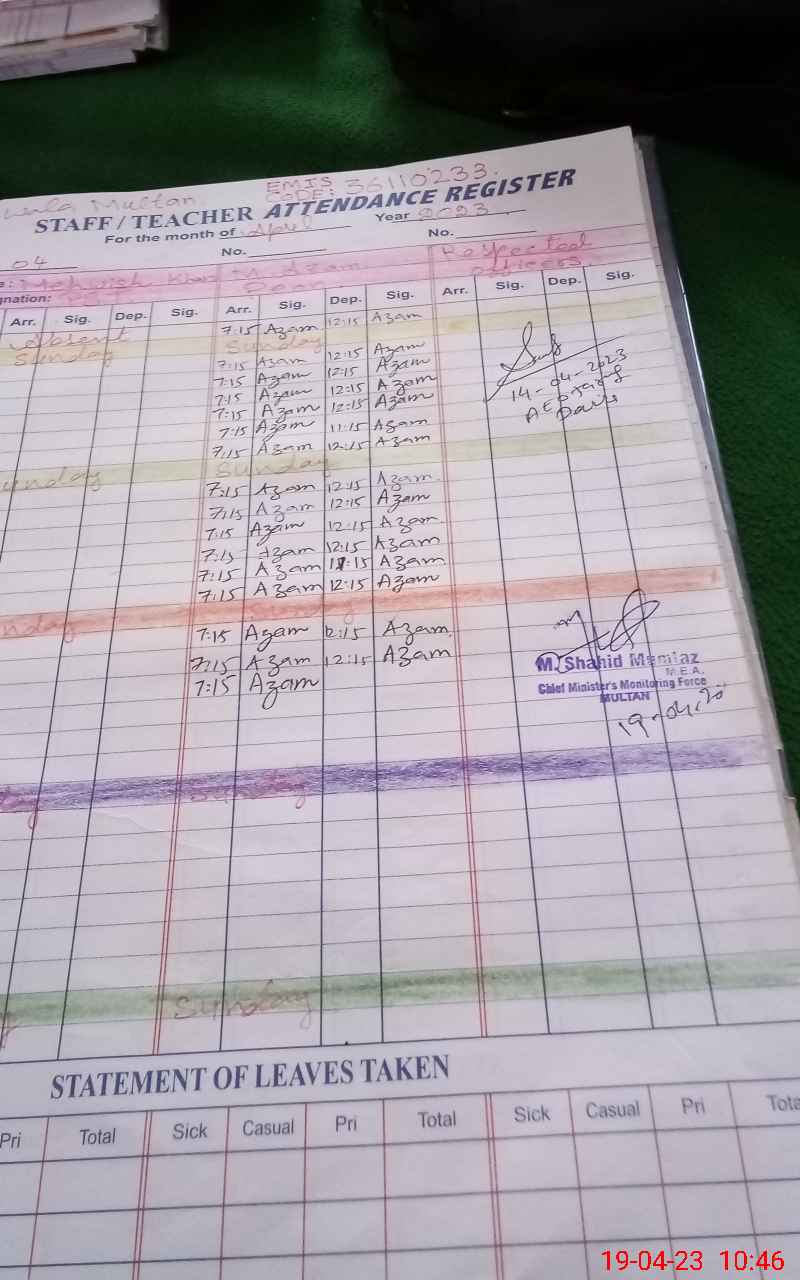 Multan.
EMIS
CODE: 36110233.
STAFF / TEACHER ATTENDANCE REGISTER
For the month of April Year 2023
No. No.
04
Mehwish Khan M. Azam Respected
gnation: officers.
Arr. Sig. Dep. Sig. Arr. Sig. Dep. Sig. Arr. Sig. Dep. Sig.
Absent 7:15 Azam 12:15 Azam
Sunday Sunday
7:15 Azam 12:15 Azam
7:15 Azam 12:15 Azam
7:15 Azam 12:15 Azam
7:15 Azam 12:15 Azam
7:15 Azam 11:15 Azam
7:15 Azam 12:15 Azam
14-04-2023
unday Sunday
7:15 Azam 12:15 Azam
7:15 Azam 12:15 Azam
7:15 Azam 12:15 Azam
7:15 Azam 12:15 Azam
7:15 Azam 11:15 Azam
7:15 Azam 12:15 Azam
nday Sunday
7:15 Azam 12:15 Azam
7:15 Azam 12:15 Azam
7:15 Azam
M. Shahid Mumtaz
M.E.A.
Chief Minister's Monitoring Force
MULTAN
19-04-20
Sunday
Sunday
STATEMENT OF LEAVES TAKEN
Pri Total Sick Casual Pri Total Sick Casual Pri Tota
19-04-23 10:46